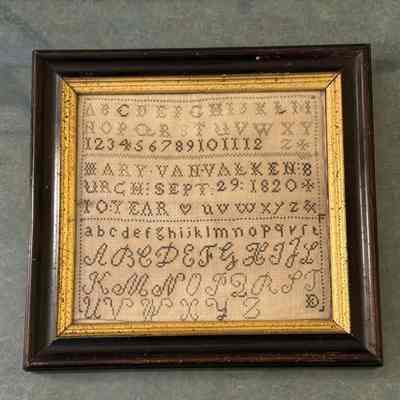 A B C D E F G H I K L M
N O P Q R S T U V W X Y
1 2 3 4 5 6 7 8 9 10 11 12 Z
MARY·VAN·VALKEN:B
URCH: SEPT 29: 1820
10·YEAR ♡ u v w x y z &
a b c d e f g h i j k l m n o p q r s t
A B C D E F G H I J L
K M N O P Q R S T
U V W X Y Z